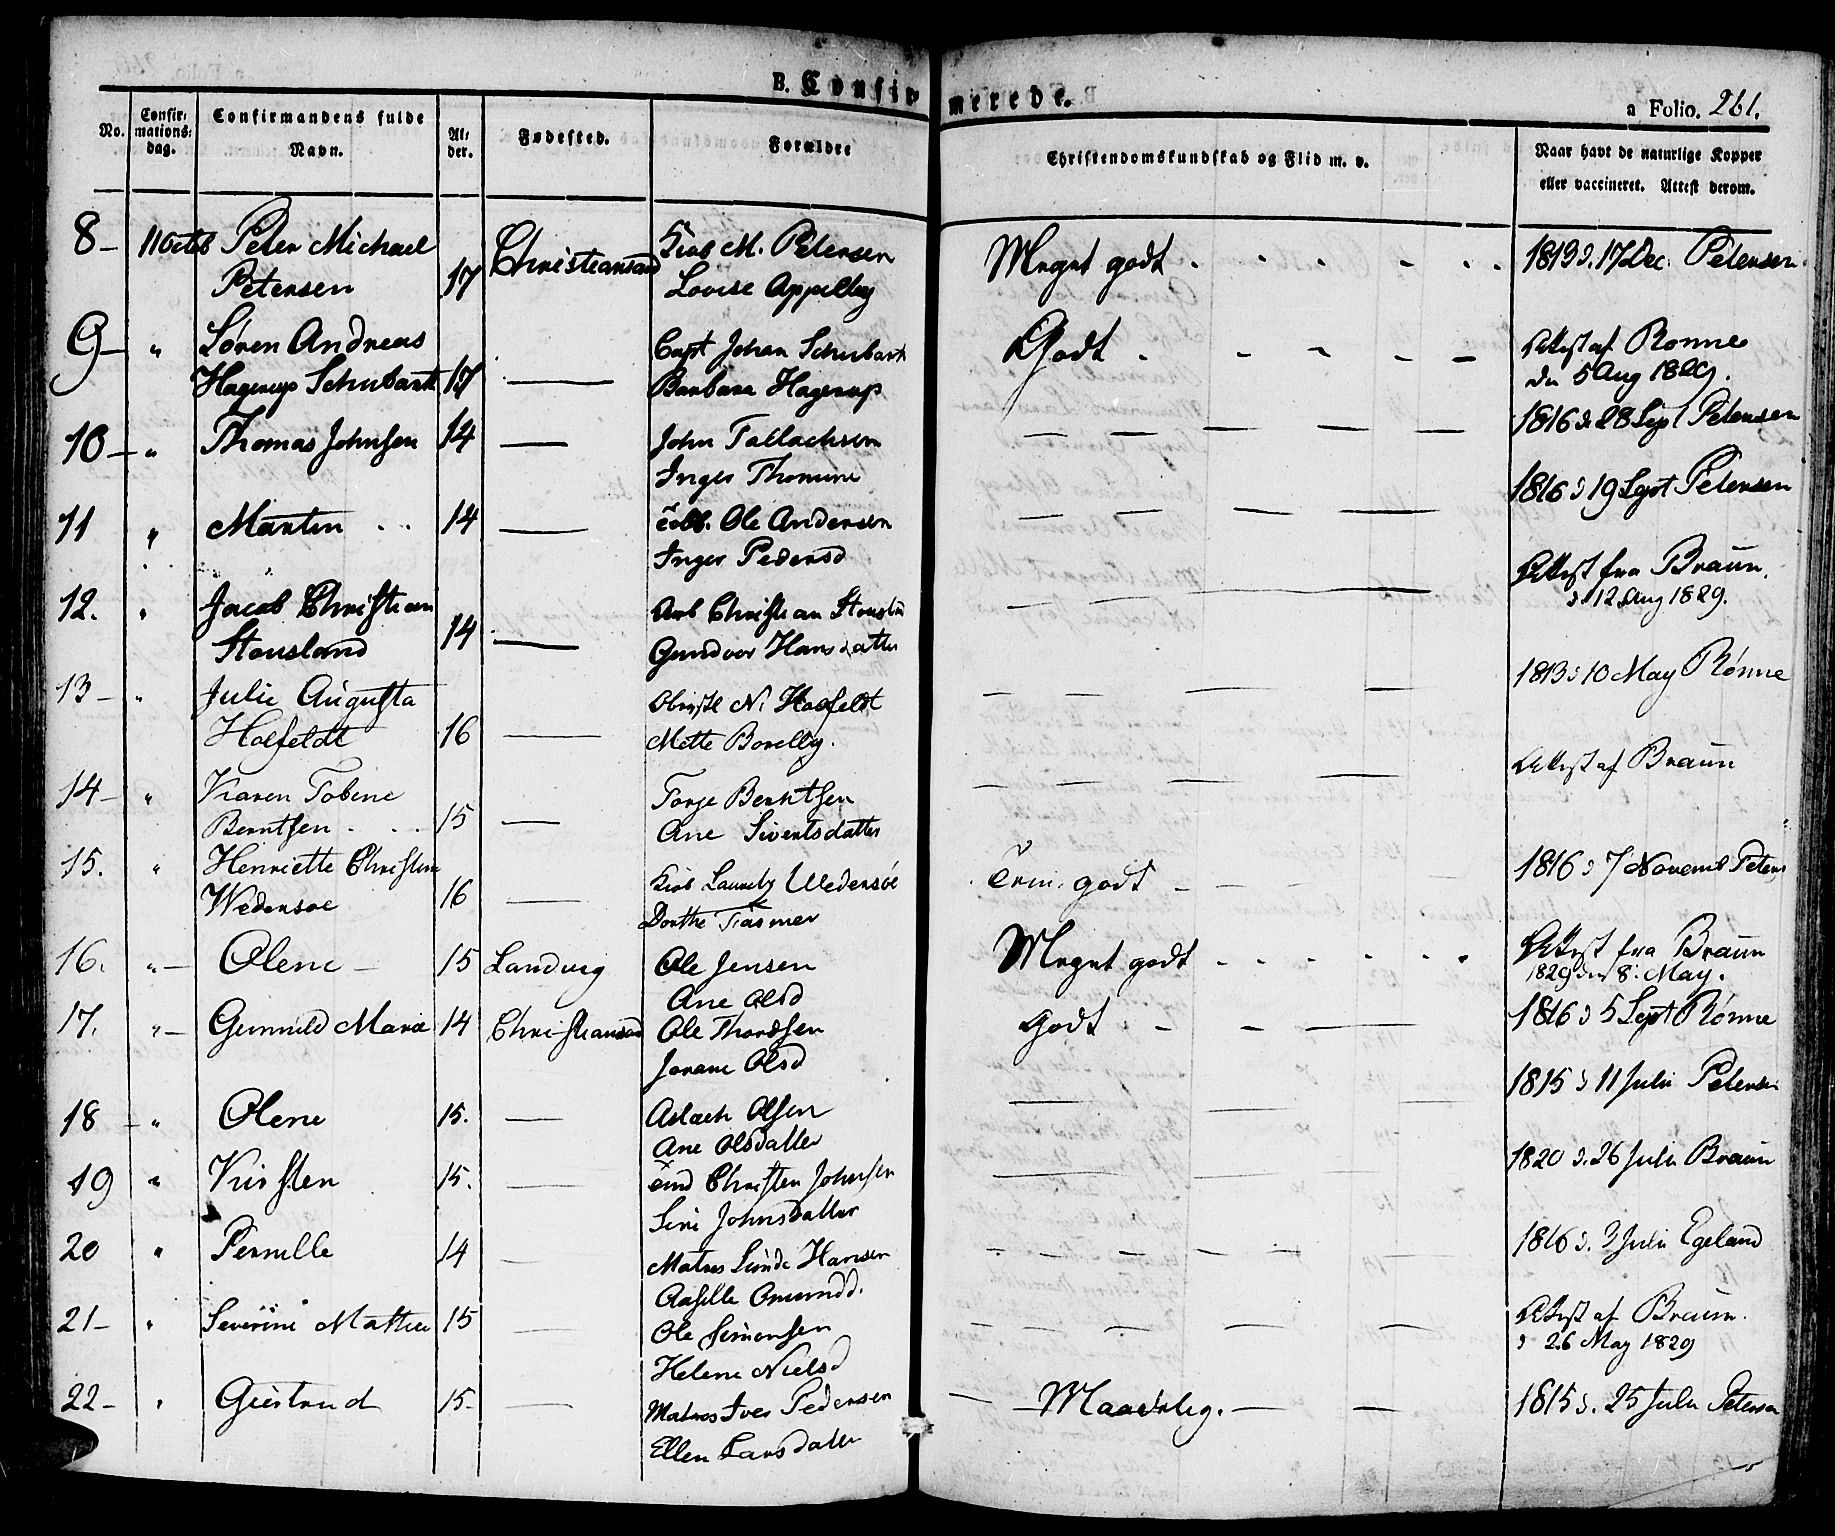 B. Confirmerede.
a Folio. 261.
No. Confirmations-dag. Confirmandens fulde Navn. Alder. Fødested. Forældre Christendomskundskab og Flid m. v. Naar havt de naturlige Kopper eller vaccineret. Attest derom.
8 - 11 Octob Peter Michael Christiansand Kiøb M. Petersen Meget godt . . . . . . 1813 d. 17 Dec. Petersen.
Petersen 17 Lovise Appelbÿ
9 - " Søren Andreas Capt Johan Schubarth Godt - - - - - Attest af Rønne
Hagerup Schubarth 17 — Barbara Hagerup du 5 Aug 1829.
10 - " Thomas Johnsen 14 — John Tallachsen — — — — — — 1816 d 28 Sept Petersen
Inger Thomine
11 " Martin . . 14 — Ole Andersen — — — — 1816 d 19 Sept Petersen
Inger Pedersd
12. " Jacob Christian Arb Christian Stousland — — — — Attest fra Braun.
Stousland 14 — Gundvor Hansdatter d 12 Aug 1829.
13 - " Julie Augusta N. Hoffeldt — — — — 1813 d 10 May Rønne
Holfeldt 16 — Mette Borelbÿ.
14 - " Karen Tobine Torje Berntsen — — — — — Attest af Braun
Berntsen . . . 15 — Ane Sivertsdatter
15. " Henriette Christine Kiøb Wedersøe godt - - - 1816 d 7 Novemb Peters
Wedersøe 16 — Dorthe Tasmer
16. " - Olene - 15 Landvig Ole Jensen Meget godt . . . . . . Attest fra Braun
Ane Olsd 1829 den 8. May.
17. " - Gunnild Marie 14 Christiansand Ole Thordsen Godt - - — 1816 d 5 Sept Rønne
Jorane Olsd
18 - " Olene 15. — Aslach Olsen — — — — 1815 d 11 Juli Petersen
Ane Olsdatter
19 " Kirsten 15. — Christen Johnsen — — — — 1820 d. 26 Juli Braun
Siri Johnsdatter
20 " Pernille 14 — Matros Hansen - - - - - - 1816 d. 3 Juli Egeland
Aaselle Omundd.
21 - " Severine Mathea 15 — Ole Simonsen - - - - - - Attest af Braun.
Helene Nielsd d 26 May 1829
22 - " Giertrud 15 - — Matros Iver Pedersen - - Maadelig. - - - - 1815 d. 25 Juli Petersen
Ellen Larsdatter